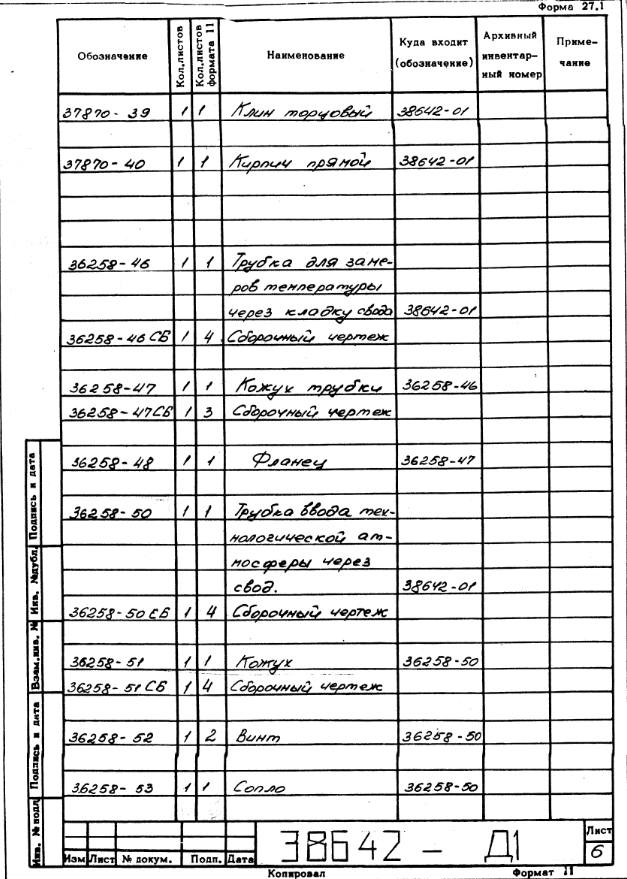 Форма 27.1
Обозначение Кол.листов Кол.листов формата 11 Наименование Куда входит (обозначение) Архивный инвентар-ный номер Приме-чание
37870-39 1 1 Клин торцовый 38642-01
37870-40 1 1 Кирпич прямой 38642-01
36258-46 1 1 Трубка для заме-
ров температуры
через кладку свода 38642-01
36258-46 СБ 1 4 Сборочный чертеж
36258-47 1 1 Кожух трубки 36258-46
36258-47СБ 1 3 Сборочный чертеж
36258-48 1 1 Фланец 36258-47
36258-50 1 1 Трубка ввода тех-
нологической ат-
мосферы через
свод. 38642-01
36258-50 СБ 1 4 Сборочный чертеж
36258-51 1 1 Кожух 36258-50
36258-51 СБ 1 4 Сборочный чертеж
36258-52 1 2 Винт 36258-50
36258-53 1 1 Сопло 36258-50
Подпись и дата
Инв. №дубл.
Взам.инв. №
Подпись и дата
Инв. № подл
38642 - Д1
Лист
6
Изм Лист № докум. Подп. Дата
Копировал Формат 11